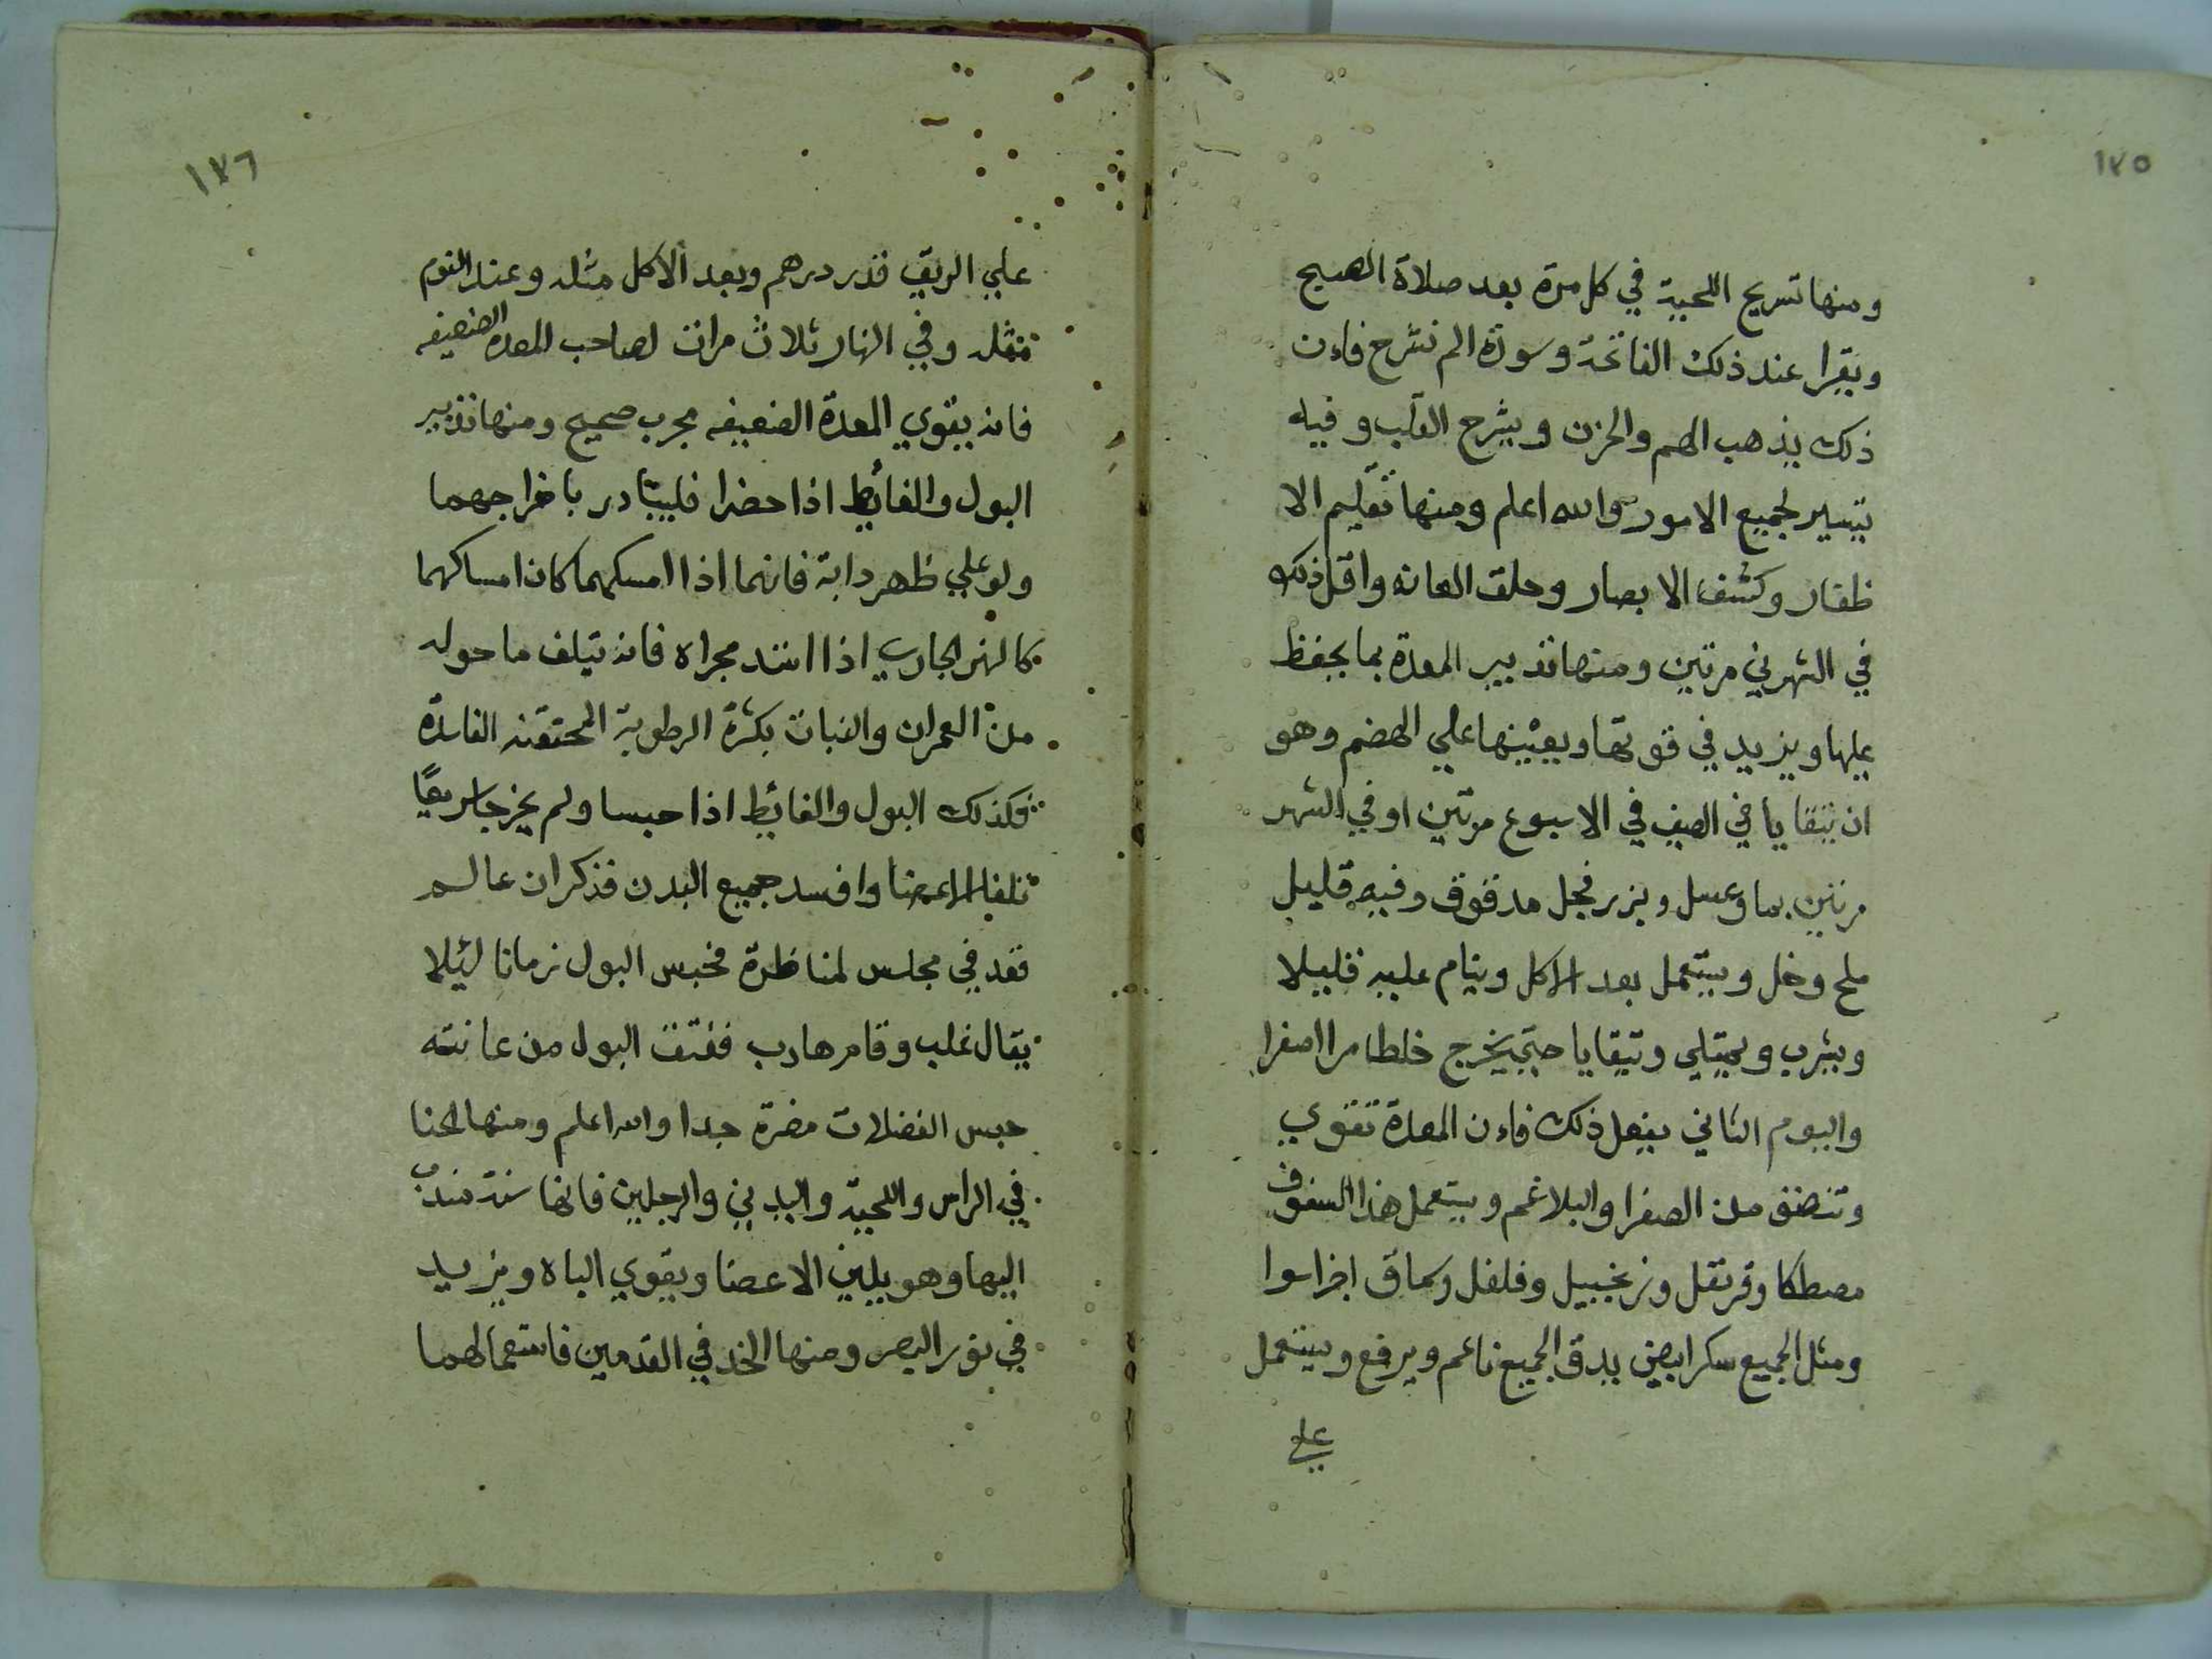 ١٧٥
ومنها تسريح اللحية في كل مرة بعد صلاة الصبح
ويقرا عند ذلك الفاتحة وسورة الم نشرح فاءن
ذلك يذهب الهم والحزن ويشرح القلب وفيه
تيسير لجميع الامور والله اعلم ومنها تقليم الا
ظفار وكشف الابصار وحلق العانه واقل ذلك
في الشهر مرتين ومنها تدبير المعدة بما يحفظ
عليها ويزيد في قوتها ويعينها علي الهضم وهو
ان يتقايا في الصيف في الاسبوع مرتين او في الشهر
مرتين بما وعسل وبزر فجل مدقوق وفيه قليل
ملح وخل ويستعمل بعد الاكل وينام عليه قليلا
ويشرب ويمتلي ويتقايا حتي يخرج خلطا مرا اصفرا
واليوم الثاني يفعل ذلك فاءن المعدة تقوي
وتنضف من الصفرا والبلاغم ويستعمل هذا السفوف
مصطكا وقرنفل وزنجبيل وفلفل وسماق اجزاسوا
ومثل الجميع سكر ابيض يدق الجميع ناعم ويرفع ويستعمل
علي
١٧٦
علي الريق قدر درهم وبعد الاكل مثله وعند النوم
مثله وفي النهار ثلاث مرات لصاحب المعدة الضعيفه
فانه يقوي المعدة الضعيفه مجرب صحيح ومنها تدبير
البول والغائيط اذا حضرا فليبادر باخراجهما
ولو علي ظهر دابة فانهما اذا امسكهما كان امساكهما
كالنهر الجاري اذا انسد مجراه فانه يتلف ما حوله
من العمران والنبات بكثرة الرطوبة المحتقنه الفاسدة
فكذلك البول والغائيط اذا حبسا ولم يخرجا سريعًا
تلفا الاعضا وافسد جميع البدن فذكر ان عالم
قعد في مجلس لمناظرة فحبس البول زمانا ليئلا
يقال غلب وقام هارب ففتق البول من عانته
حبس الفضلات مضرة جدا والله اعلم ومنها الحنا
في الراس واللحية واليدين والرجلين فانها سنة مندب
اليها وهو يلين الاعضا ويقوي الباه ويزيد
في نور البصر ومنها الخد في القدمين فاستعمالهما